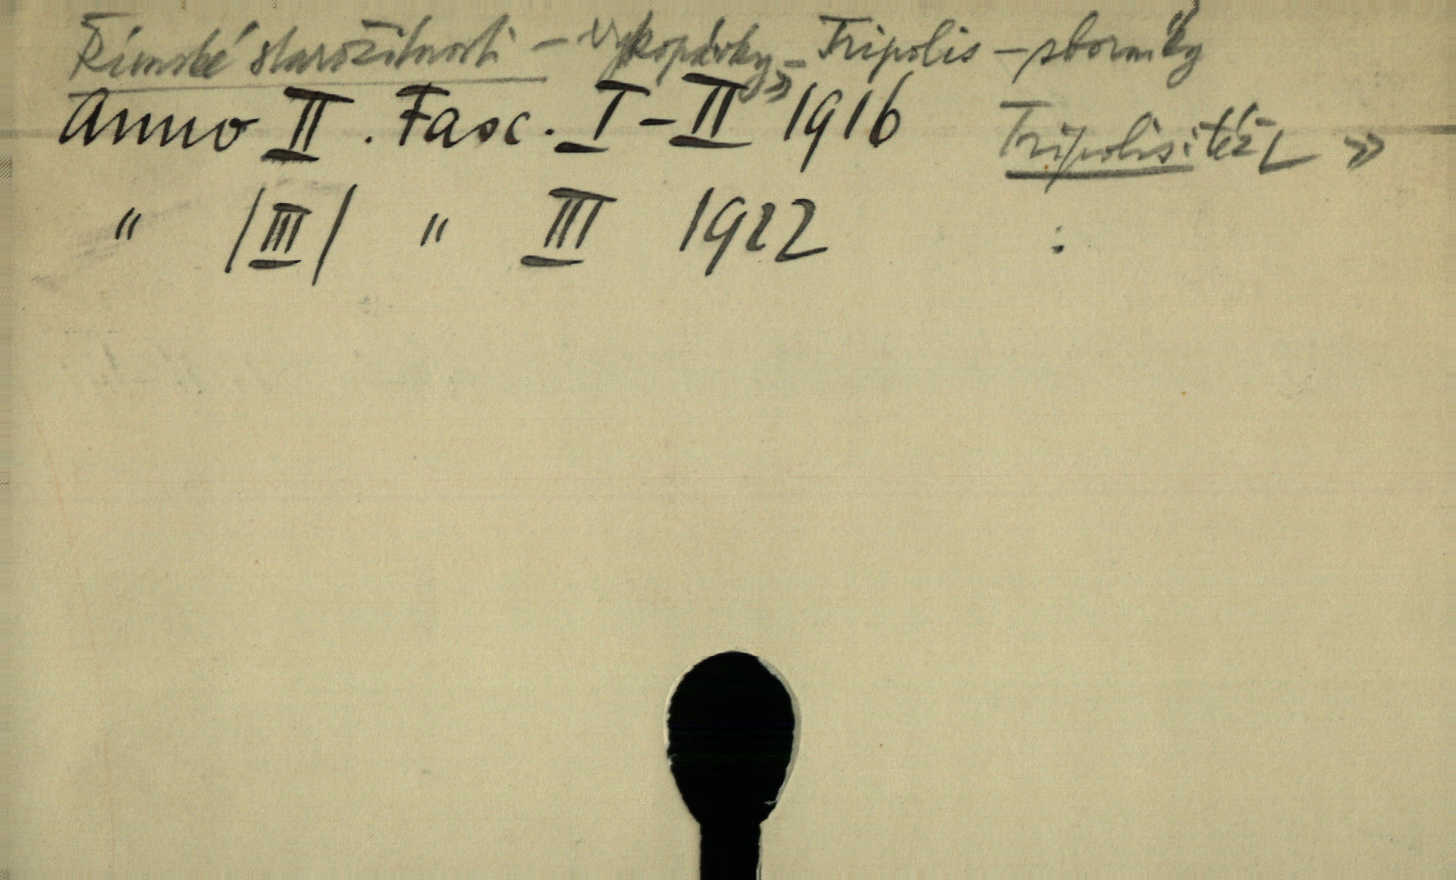 Římské starožitnosti – vykopávky – Tripolis – sborníky
Anno II. Fasc. I – II 1916
Tripolis: též L »
" /III/ " III 1922 :